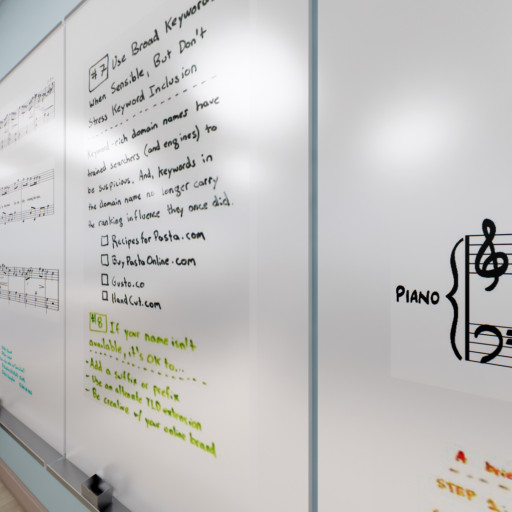 #7 Use Broad Keywords
When Sensible, But Don't
Stress Keyword Inclusion
Keyword-rich domain names have
trained searchers (and engines) to
be suspicious. And, keywords in
the domain name no longer carry
the ranking influence they once did.
RecipesforPasta.com
BuyPastaOnline.com
Gusto.co
HandCut.com
#8 If your name isn't
available, it's OK to...
- Add a suffix or prefix
- Use an alternate TLD extension
- Be creative w/ your online brand
PIANO
A
STEP